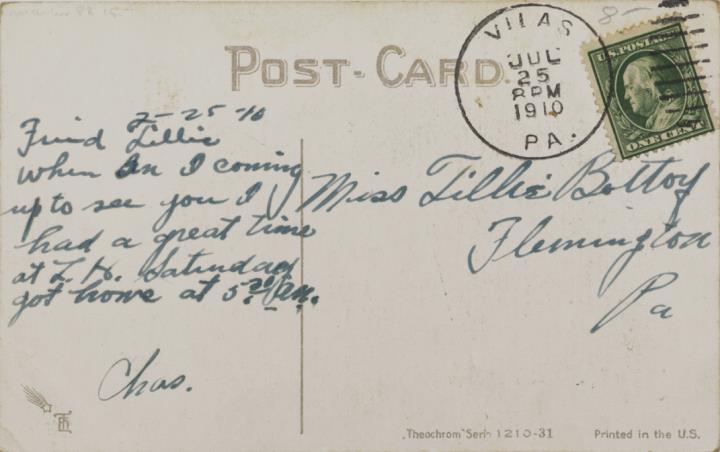 VILAS
JUL
25
8 PM
1910
PA.
U.S. POSTAGE
ONE CENT
8-
POST-CARD
7-25-10
Friend Tillie
when am I coming
up to see you I
had a great time
at L. H. Saturday
got home at 5 30 AM.
Chas.
Miss Tillie Bottoy
Flemington
Pa
"Theochrom" Serie 1210-31
Printed in the U.S.